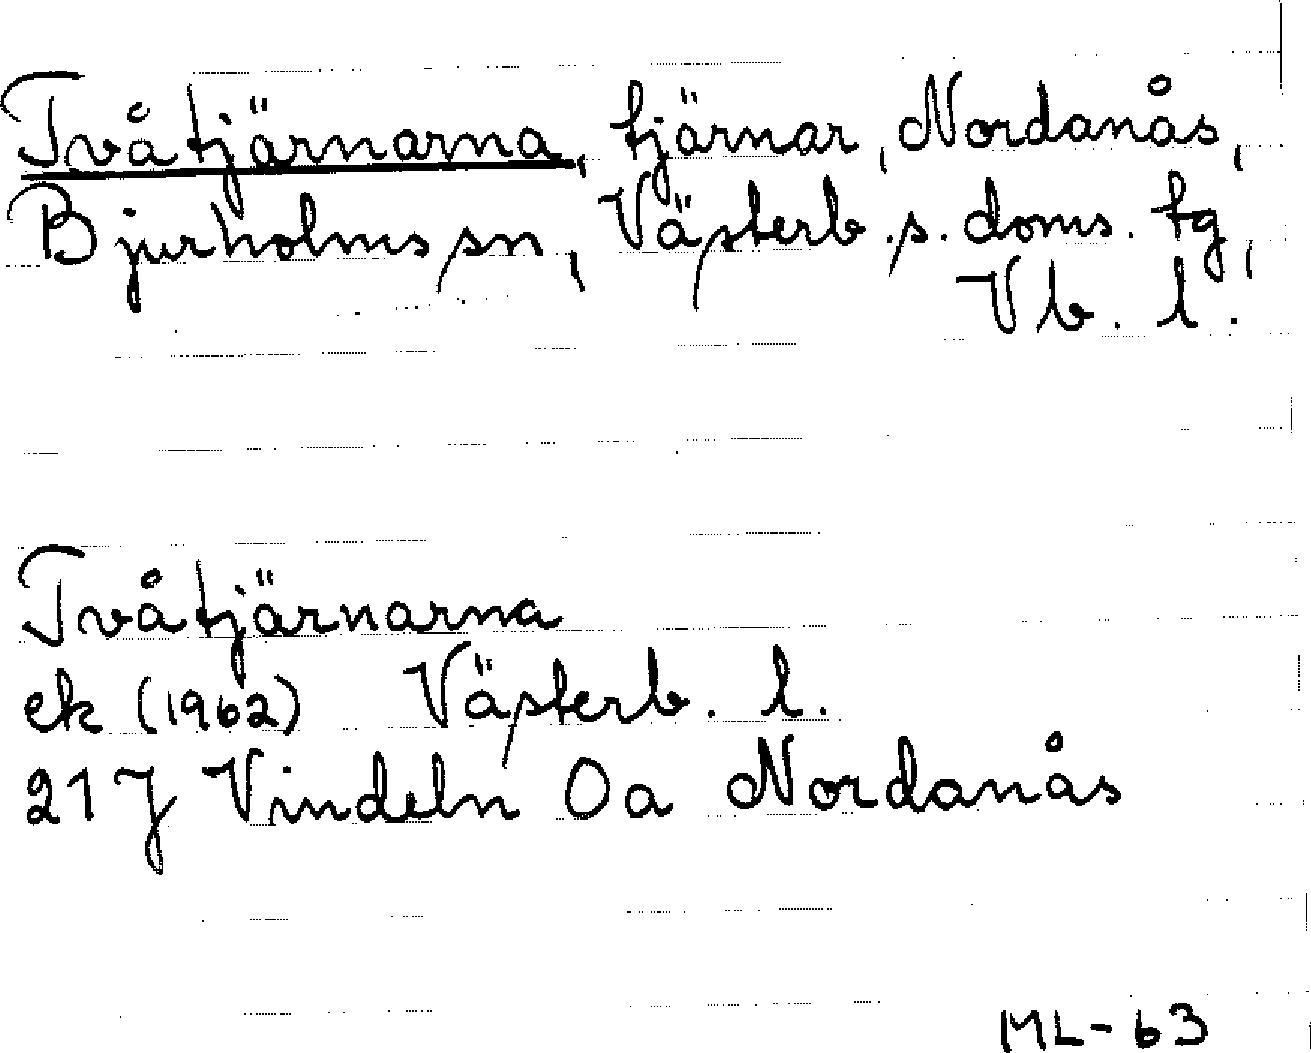 Tvåtjärnarna, tjärnar, Nordanås,
Bjurholms sn, Västerb. s. doms. tg,
Vb. l.
Tvåtjärnarna
ek (1962) Västerb. l.
21 J Vindeln 0a Nordanås
ML-63